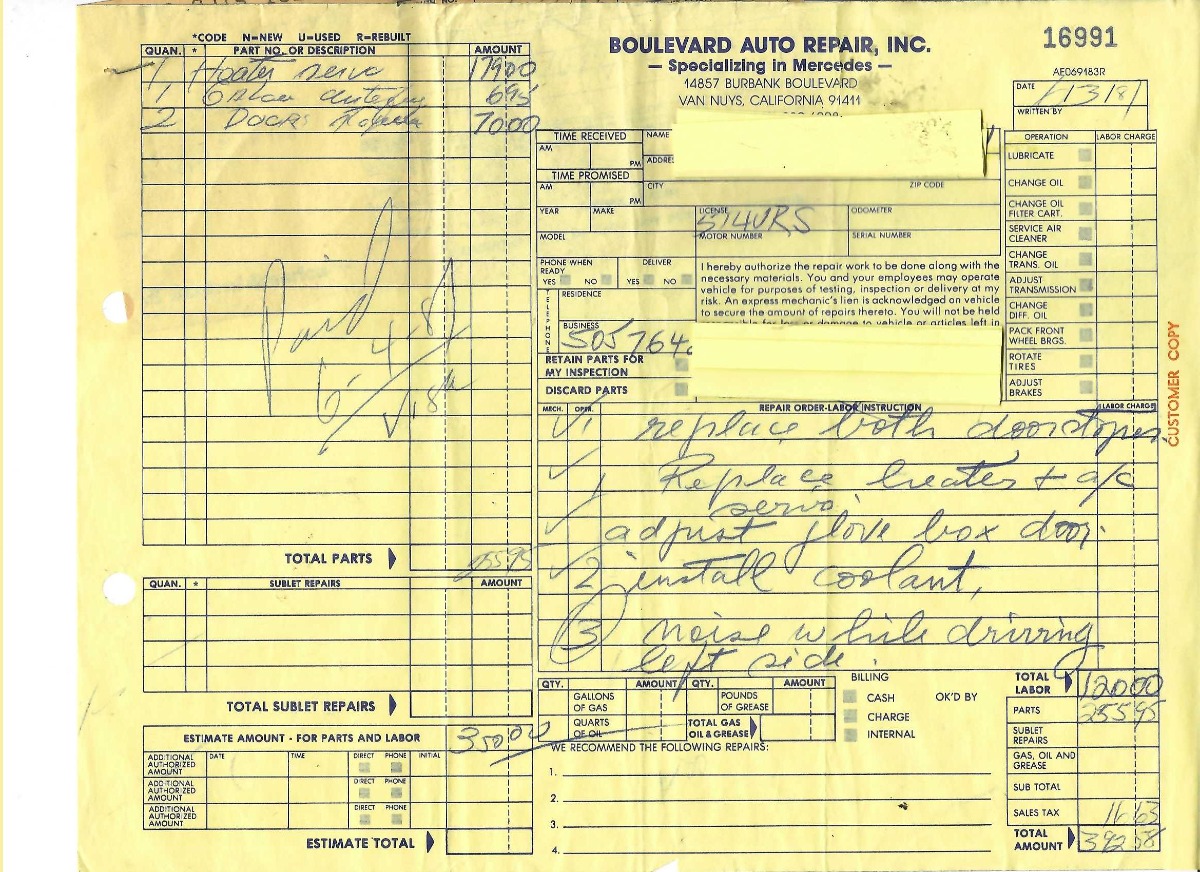 *CODE N=NEW U=USED R=REBUILT
QUAN. * PART NO. OR DESCRIPTION AMOUNT
1 Heater servo 179 00
1 antifreeze 6 95
2 Doors 70 00
Paid
6-4-81
TOTAL PARTS 255 95
QUAN. * SUBLET REPAIRS AMOUNT
TOTAL SUBLET REPAIRS
ESTIMATE AMOUNT - FOR PARTS AND LABOR 350 00
ADDITIONAL AUTHORIZED AMOUNT DATE TIME DIRECT PHONE INITIAL
ADDITIONAL AUTHORIZED AMOUNT DIRECT PHONE
ADDITIONAL AUTHORIZED AMOUNT DIRECT PHONE
ESTIMATE TOTAL
BOULEVARD AUTO REPAIR, INC.
— Specializing in Mercedes —
14857 BURBANK BOULEVARD
VAN NUYS, CALIFORNIA 91411
16991
AE069183R
DATE
WRITTEN BY
TIME RECEIVED NAME
AM PM ADDRE
TIME PROMISED
AM PM CITY ZIP CODE
YEAR MAKE LICENSE 514URS ODOMETER
MODEL MOTOR NUMBER SERIAL NUMBER
PHONE WHEN READY YES NO DELIVER YES NO
TELEPHONE
RESIDENCE
BUSINESS
505 764
RETAIN PARTS FOR
MY INSPECTION
DISCARD PARTS
I hereby authorize the repair work to be done along with the
necessary materials. You and your employees may operate
vehicle for purposes of testing, inspection or delivery at my
risk. An express mechanic's lien is acknowledged on vehicle
to secure the amount of repairs thereto. You will not be held
for loss or damage to vehicle or articles left in
OPERATION LABOR CHARGE
LUBRICATE
CHANGE OIL
CHANGE OIL FILTER CART.
SERVICE AIR CLEANER
CHANGE TRANS. OIL
ADJUST TRANSMISSION
CHANGE DIFF. OIL
PACK FRONT WHEEL BRGS.
ROTATE TIRES
ADJUST BRAKES
CUSTOMER COPY
MECH. OPER. REPAIR ORDER-LABOR INSTRUCTION LABOR CHARGE
1 replace both doorstoper
1 Replace heater + a/c
servo
adjust glove box door.
2 install coolant,
3 noise while driving
left side.
QTY. AMOUNT QTY. AMOUNT
GALLONS OF GAS POUNDS OF GREASE
QUARTS OF OIL TOTAL GAS OIL & GREASE
BILLING
CASH OK'D BY
CHARGE
INTERNAL
WE RECOMMEND THE FOLLOWING REPAIRS:
1.
2.
3.
4.
TOTAL LABOR 120 00
PARTS 255 95
SUBLET REPAIRS
GAS, OIL AND GREASE
SUB TOTAL
SALES TAX 16 63
TOTAL AMOUNT 392 58